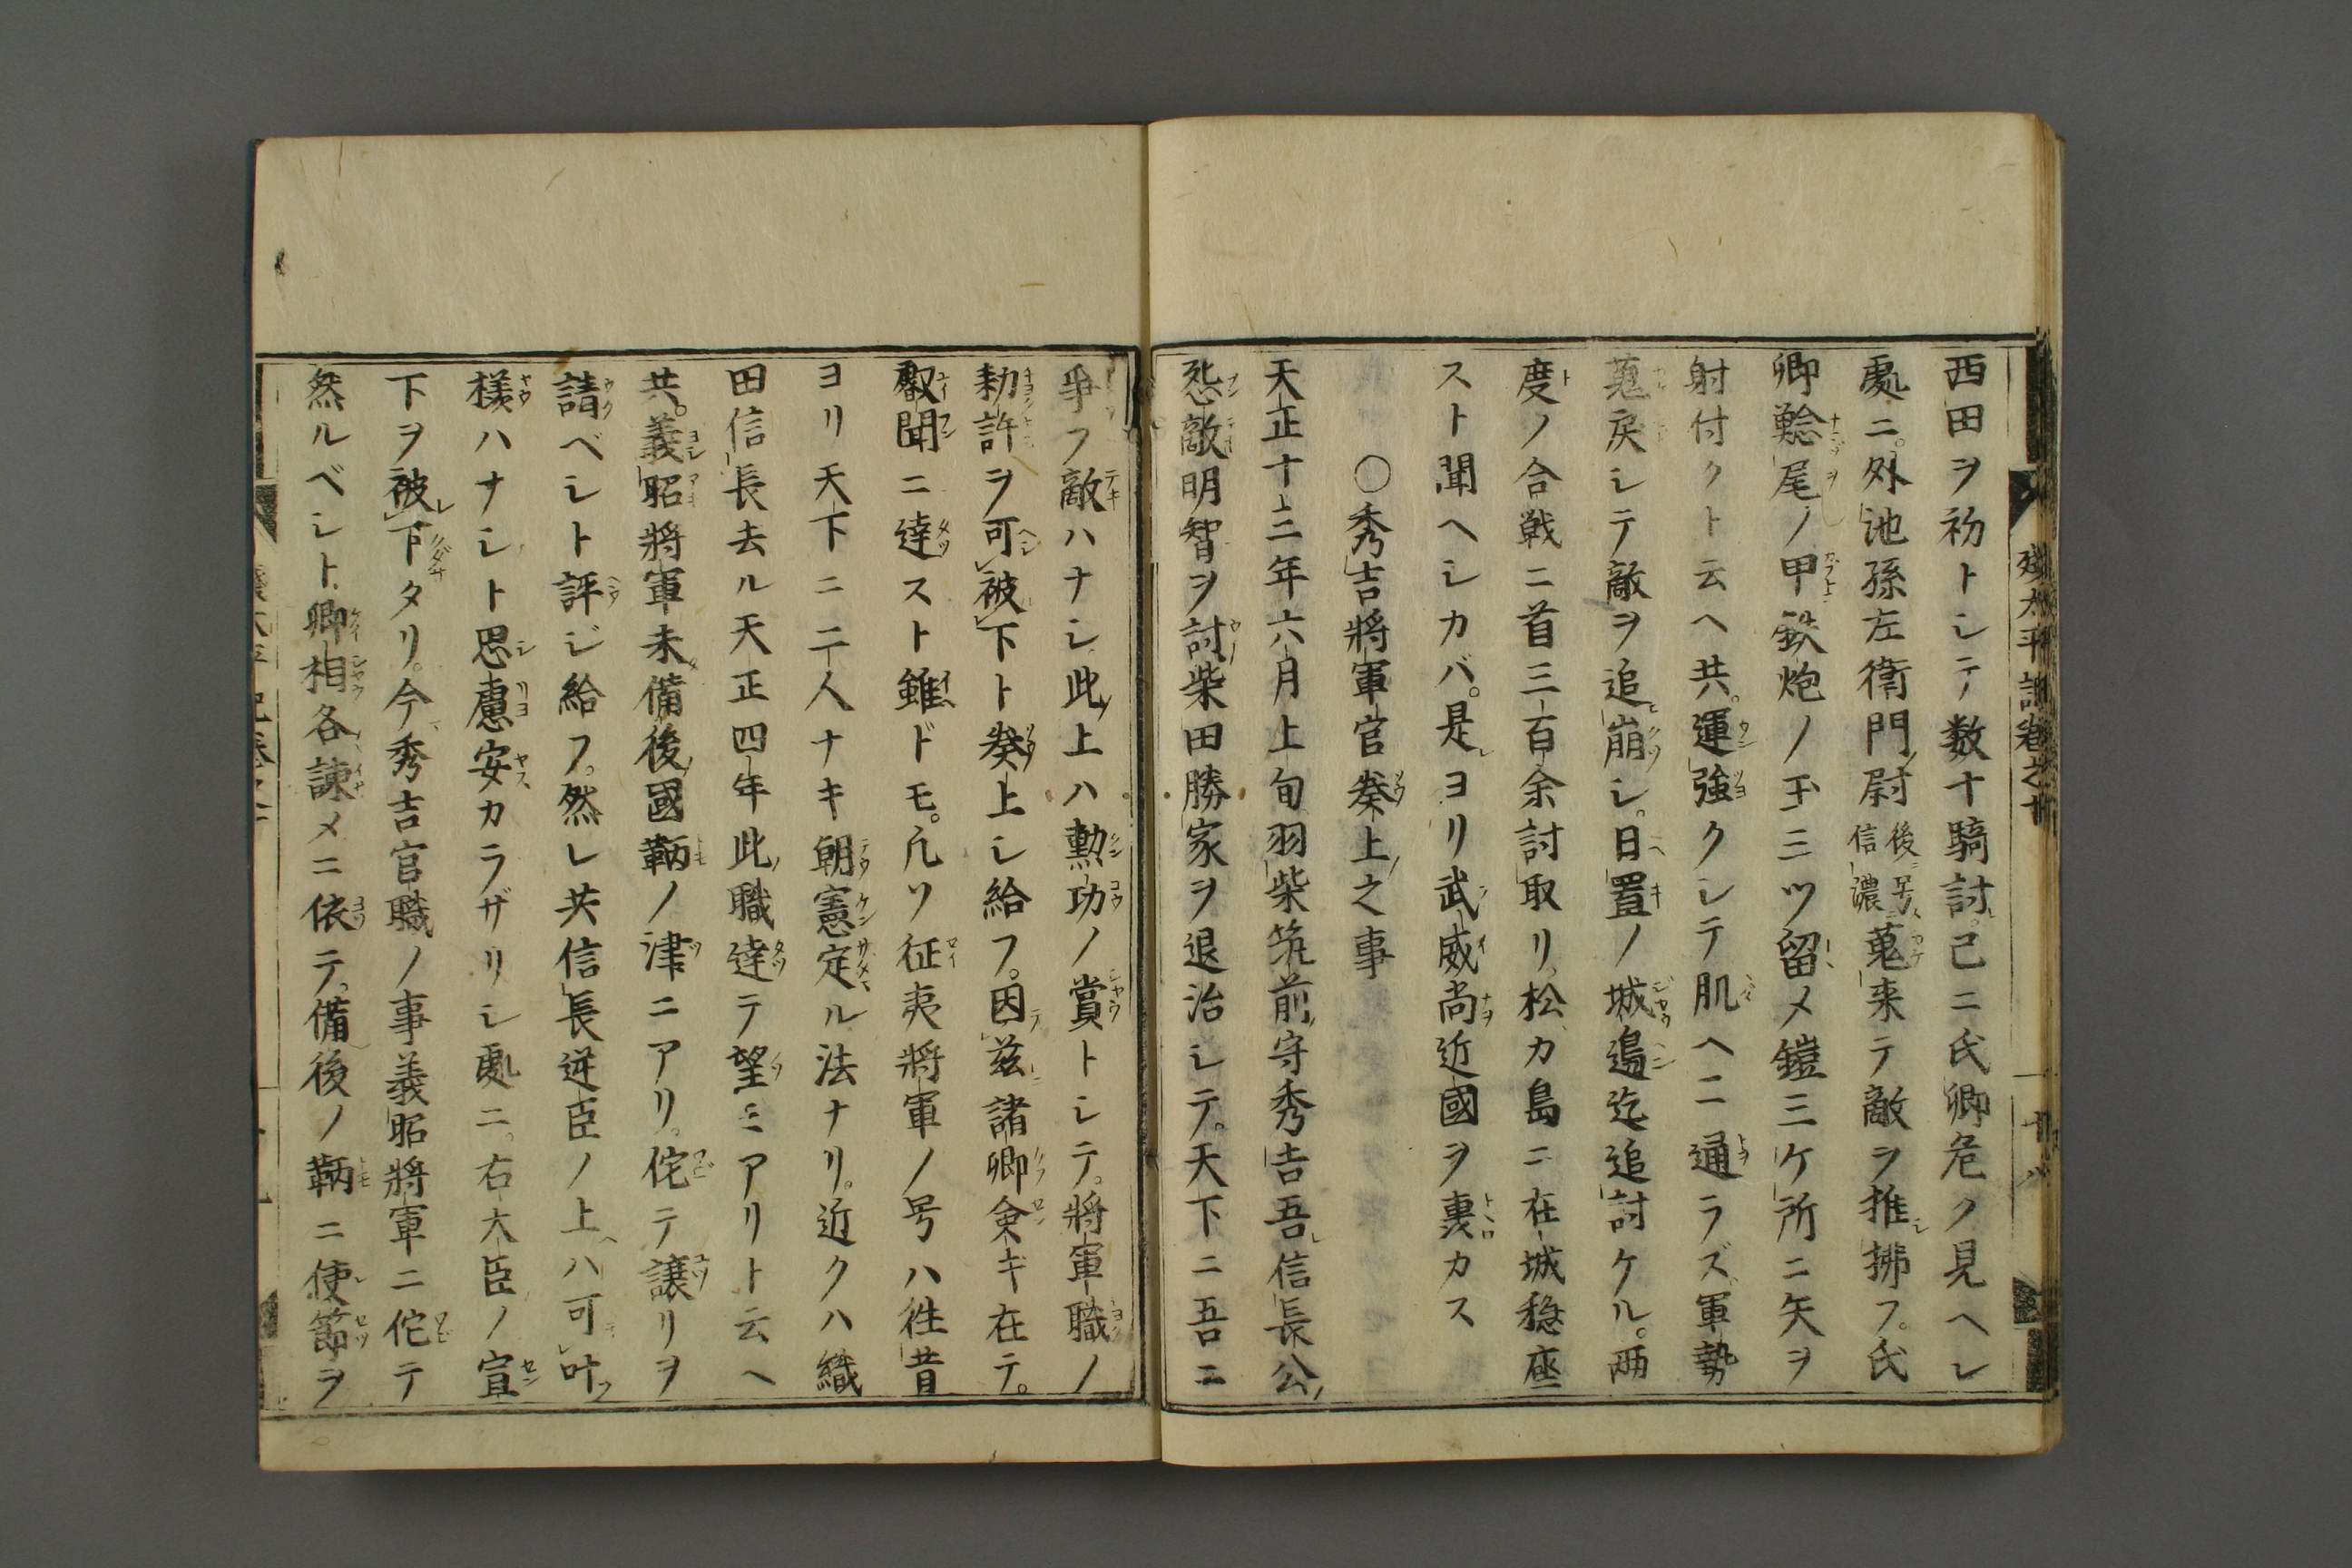 西田ヲ初トシテ数十騎討。己ニ氏卿危ク見ヘシ
處ニ。外池孫左衛門尉後号信濃蒐来テ敵ヲ推拂フ。氏
卿鯰尾ノ甲鉄炮ノ玉三ツ留メ鎧三ケ所ニ矢ヲ
射付クト云ヘ共。運強クシテ肌ヘニ通ラズ軍勢
蒐戻シテ敵ヲ追崩シ。日置ノ城邊迄追討ケル。両
度ノ合戦ニ首三百余討取リ。松カ島ニ在城穏座
スト聞ヘシカバ。是ヨリ武威尚近國ヲ裏カス
○秀吉將軍官奏上之事
天正十三年六月上旬羽柴筑前守秀吉吾信長公ノ
怨敵明智ヲ討柴田勝家ヲ退治シテ。天下ニ吾ニ
爭フ敵ハナシ此上ハ勲功ノ賞トシテ。將軍職ノ
勅許ヲ可被下ト奏上シ給フ。因茲諸卿僉キ在テ。
叡聞ニ達スト雖ドモ。凡ソ征夷將軍ノ号ハ往昔
ヨリ天下ニ二人ナキ朝憲定ル法ナリ。近クハ織
田信長去ル天正四年此職達テ望ミアリト云ヘ
共。義昭將軍未備後國鞆ノ津ニアリ。侘テ譲リヲ
請ベシト評ジ給フ。然レ共信長逆臣ノ上ハ可叶
様ハナシト思慮安カラザリシ處ニ。右大臣ノ宣
下ヲ被下タリ。今秀吉官職ノ事義昭將軍ニ侘テ
然ルベシト卿相各諫メニ依テ。備後ノ鞆ニ使節ヲ
残太平記巻之十
十八